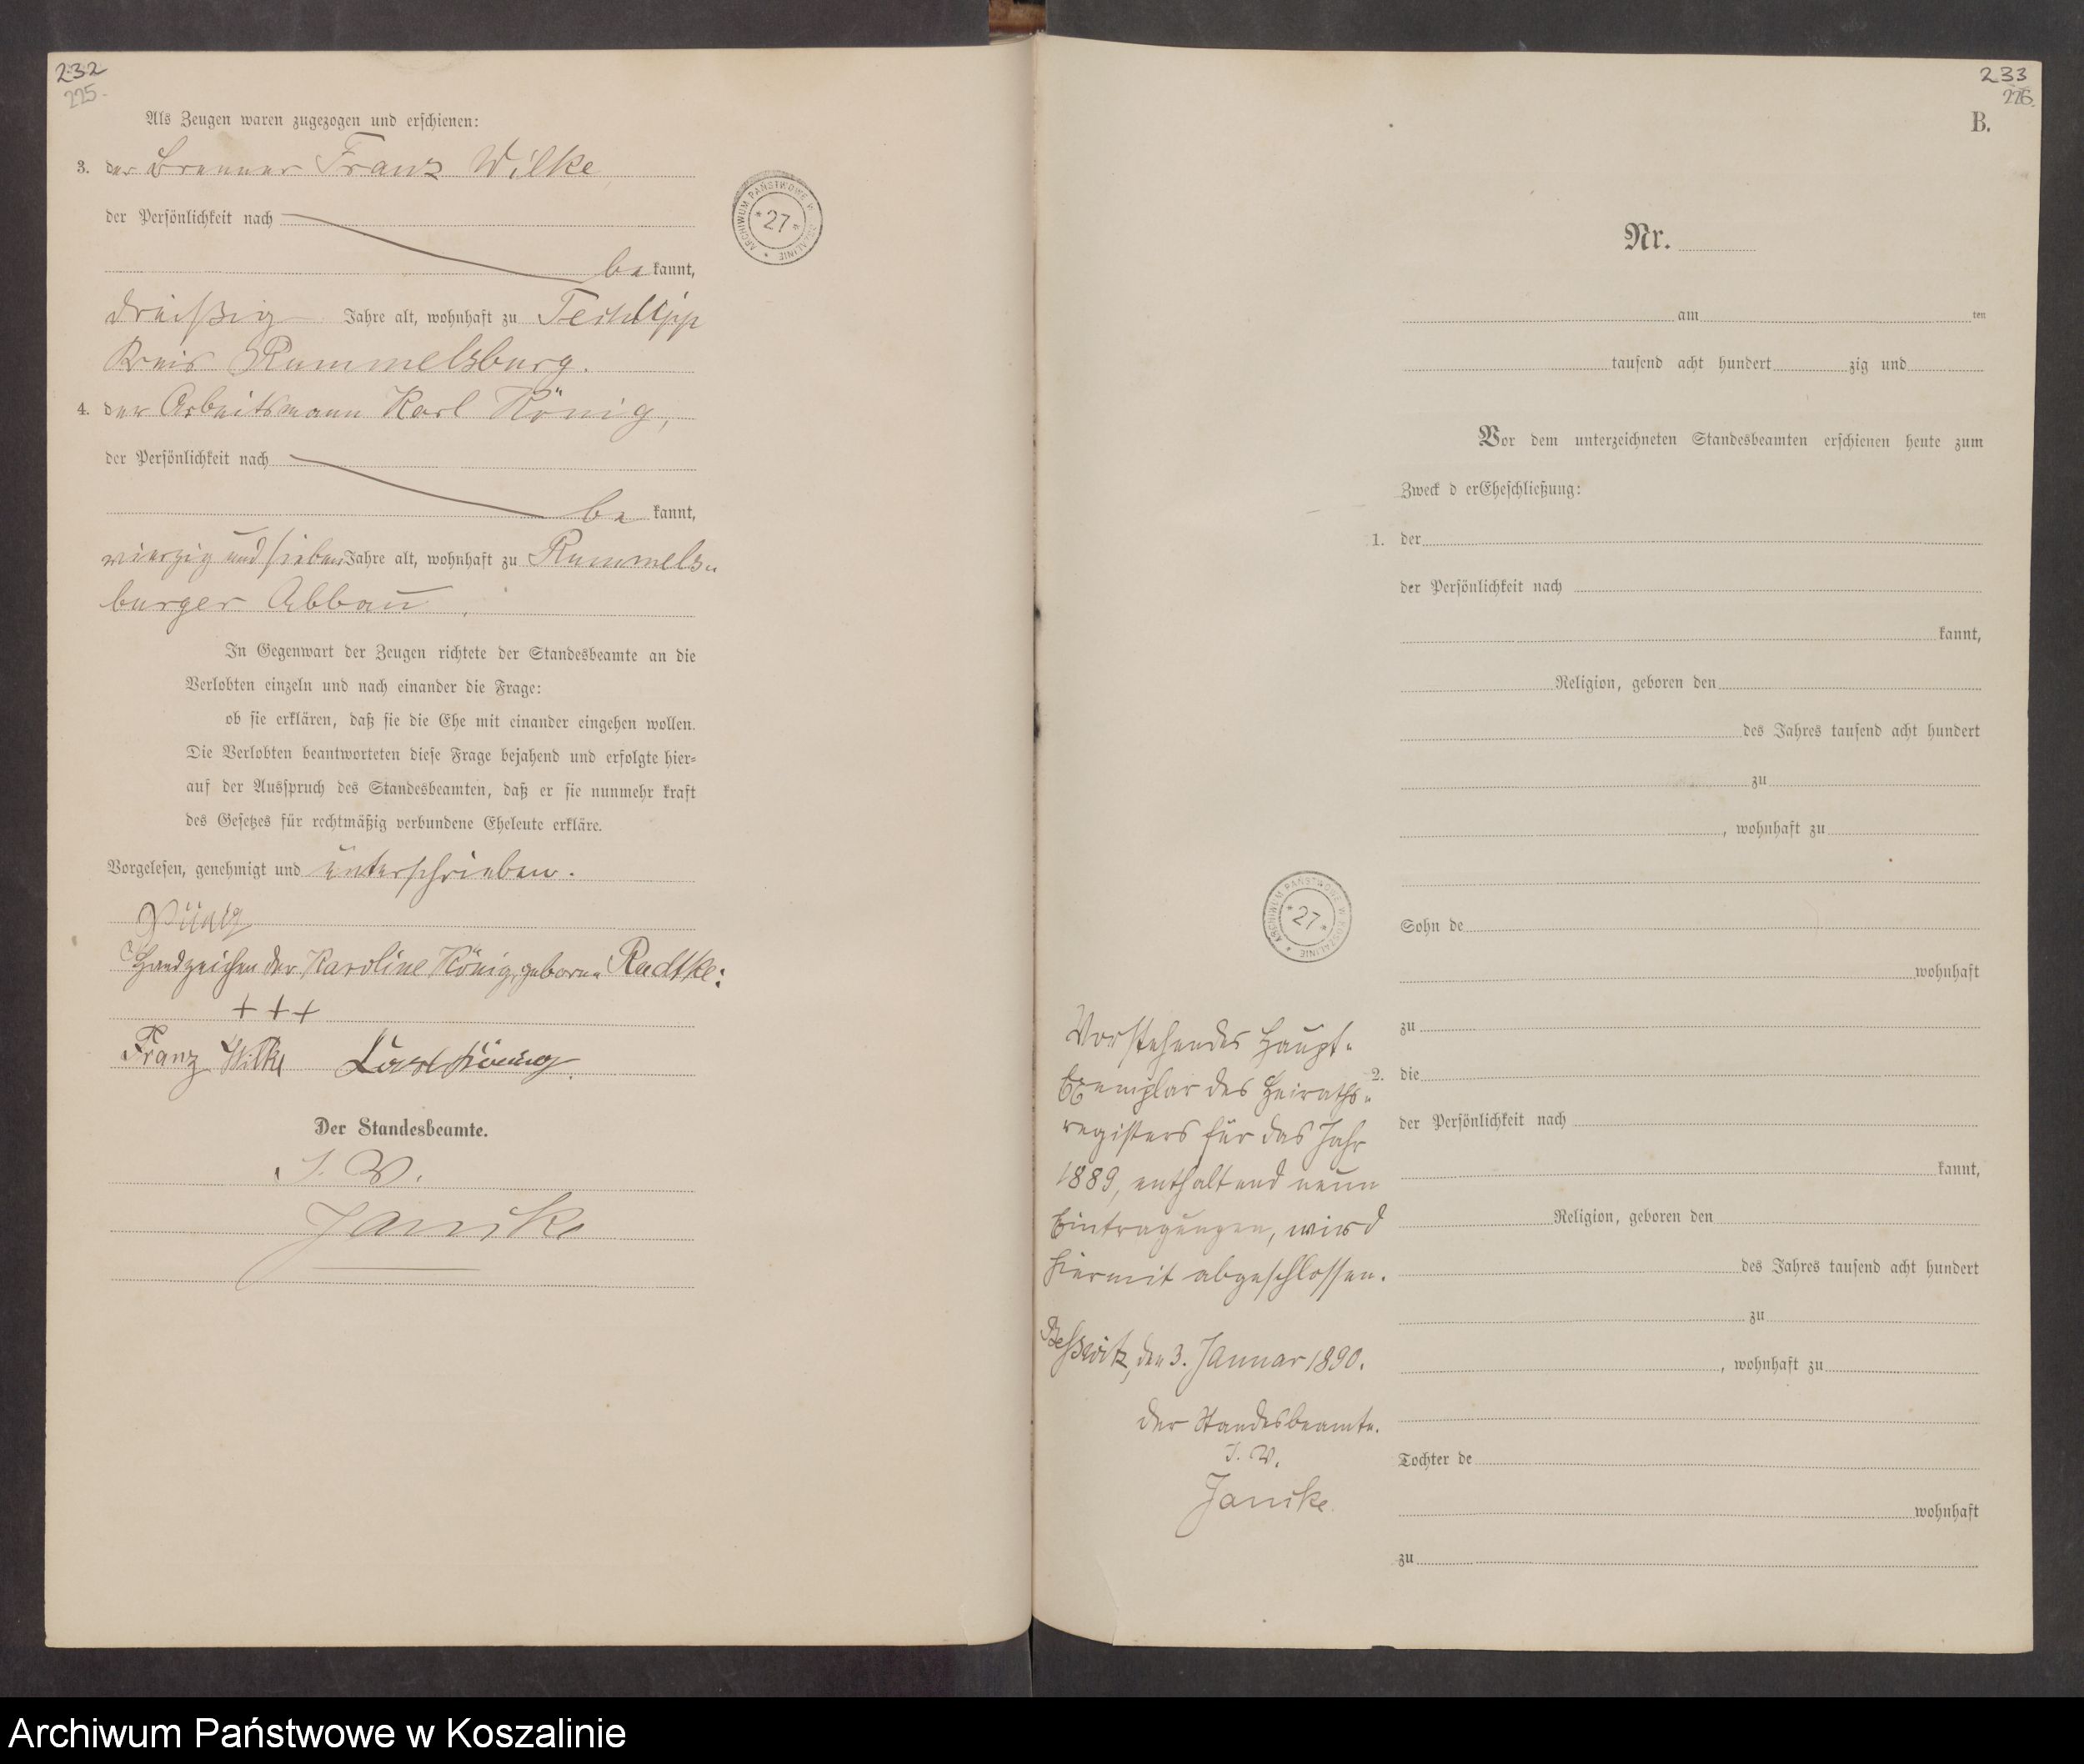 232
225.
Als Zeugen waren zugezogen und erschienen:
3. der Brenner Franz Wilke,
der Persönlichkeit nach
be kannt,
dreißig Jahre alt, wohnhaft zu Techlipp
Kreis Rummelsburg.
4. der Arbeitsmann Karl König,
der Persönlichkeit nach
be kannt,
vierzig und sieben Jahre alt, wohnhaft zu Rummels-
burger Abbau.
In Gegenwart der Zeugen richtete der Standesbeamte an die
Verlobten einzeln und nach einander die Frage:
ob sie erklären, daß sie die Ehe mit einander eingehen wollen.
Die Verlobten beantworteten diese Frage bejahend und erfolgte hier-
auf der Ausspruch des Standesbeamten, daß er sie nunmehr kraft
des Gesetzes für rechtmäßig verbundene Eheleute erkläre.
Vorgelesen, genehmigt und unterschrieben.
Handzeichen der Karoline König, geborene Radtke:
+++
Franz Wilke Karl König.
Der Standesbeamte.
I. V.
Janike
ARCHIWUM PAŃSTWOWE W KOSZALINIE
* 27 *
233
226.
B.
Nr.
am ten
tausend acht hundert zig und
Vor dem unterzeichneten Standesbeamten erschienen heute zum
Zweck d erEheschließung:
1. der
der Persönlichkeit nach
kannt,
Religion, geboren den
des Jahres tausend acht hundert
zu
, wohnhaft zu
Sohn de
wohnhaft
zu
2. die
der Persönlichkeit nach
kannt,
Religion, geboren den
des Jahres tausend acht hundert
zu
, wohnhaft zu
Tochter de
wohnhaft
zu
ARCHIWUM PAŃSTWOWE W KOSZALINIE
* 27 *
Vorstehendes Haupt-
Exemplar des Heiraths-
registers für das Jahr
1889, enthaltend neun
Eintragungen, wird
hiermit abgeschlossen.
Beßwitz, den 3. Januar 1890.
Der Standesbeamte.
I. V.
Janike
Archiwum Państwowe w Koszalinie